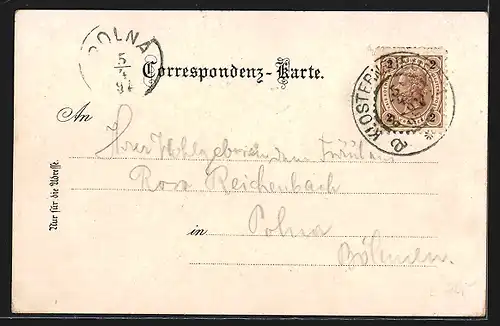 POLNA
5
4
97
Correspondenz-Karte.
KLOSTERN
An
Fräulein
Rosa Reichenbach
in Polna
Böhmen.
Nur für die Adresse.